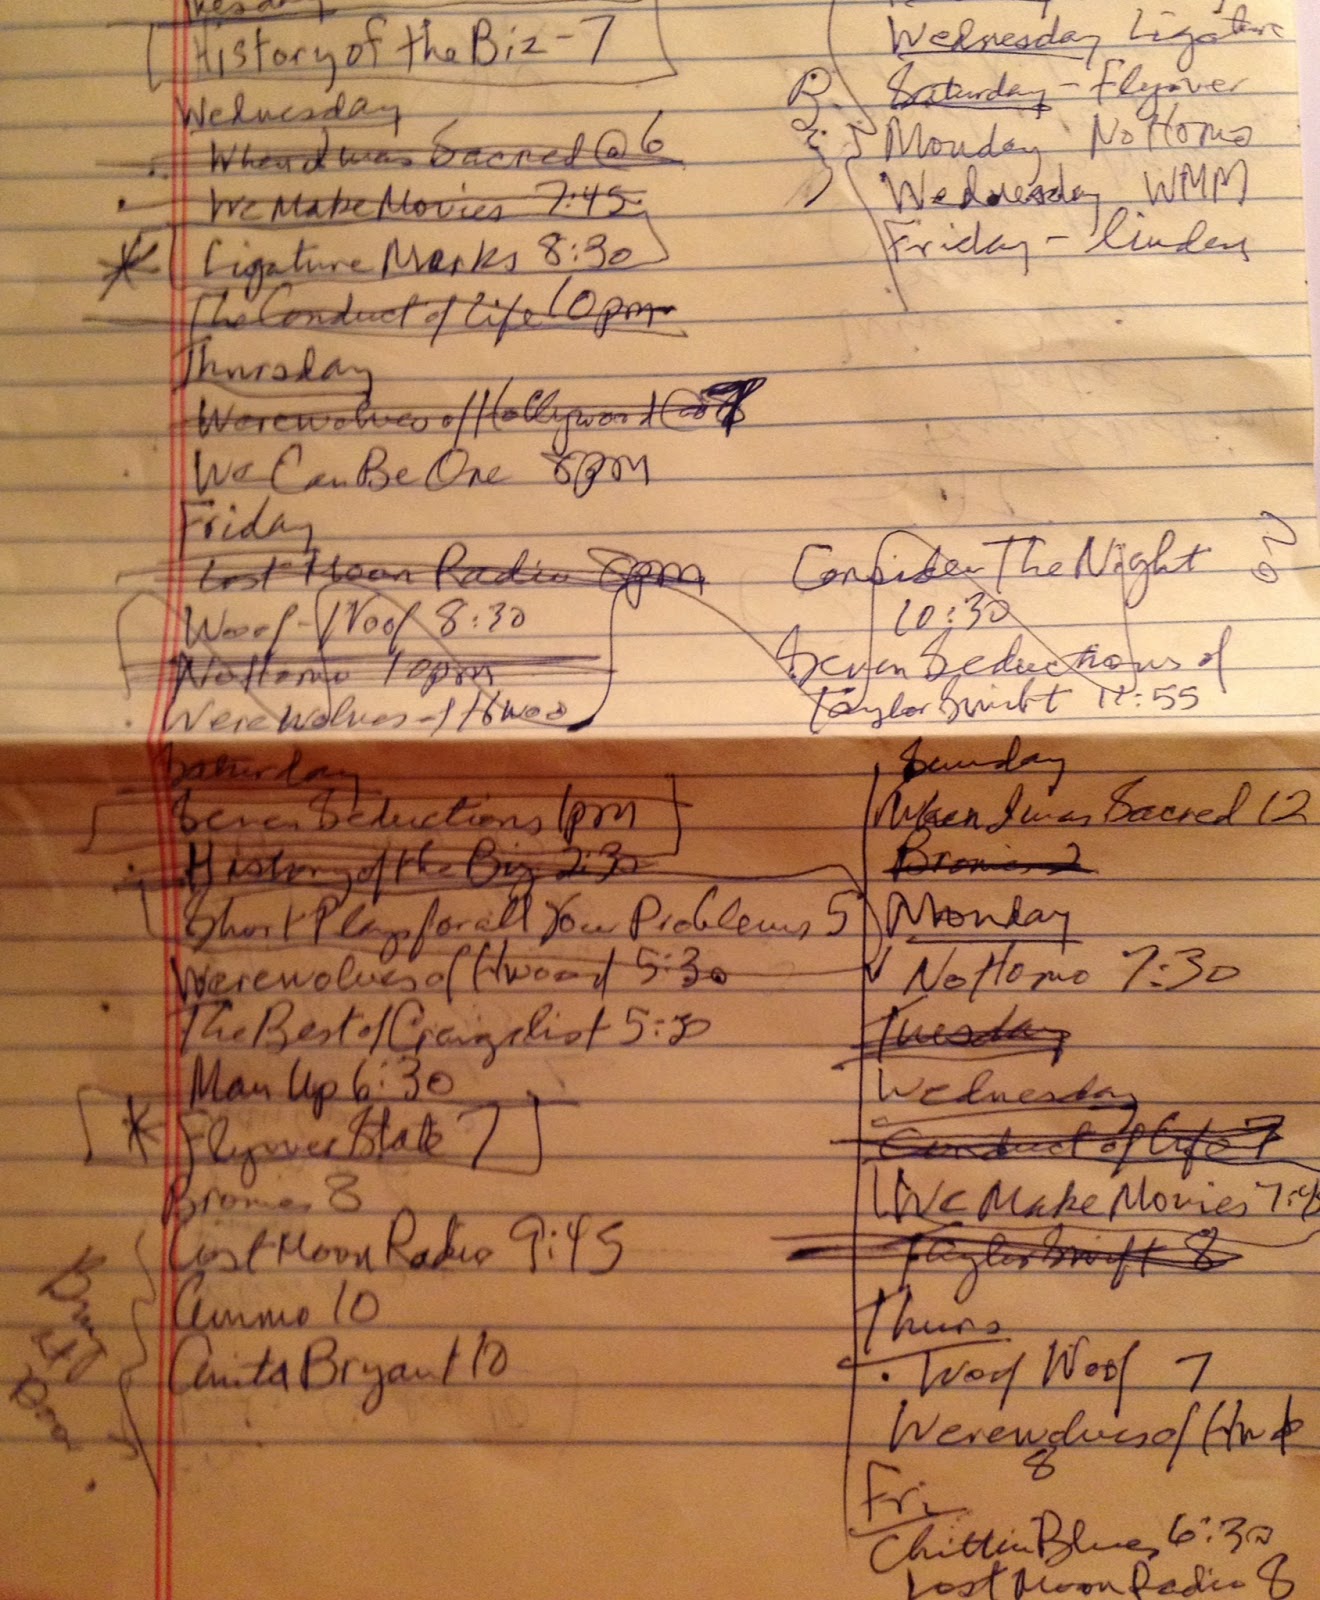 Tuesday
History of the Biz - 7
Wednesday
When I was Sacred @ 6
We Make Movies 7:45
* Ligature Marks 8:30
The Conduct of Life 10pm
Thursday
Werewolves of Hollywood @
We Can Be One 8pm
Friday
Lost Moon Radio 8pm
Woof-Woof 8:30
No Homo 10pm
Werewolves of Hwood
Wednesday Ligature
Saturday - Flyover
Monday No Homo
Wednesday WMM
Friday - Linden
Consider The Night
10:30
Seven Seductions of
Taylor Swift 11:55
Saturday
Seven Seductions 1pm
History of the Biz 2:30
Short Plays for all Your Problems 5
Werewolves of Hwood 5:30
The Best of Craigslist 5:30
Man Up 6:30
* Flyover State 7
Bronies 8
Lost Moon Radio 9:45
Ammo 10
Anita Bryant 10
Sunday
When I was Sacred 12
Bronies 2
Monday
No Homo 7:30
Tuesday
Wednesday
Conduct of Life 7
We Make Movies 7:45
Taylor Swift 8
Thurs
Woof Woof 7
Werewolves of
8
Fri
Chittlin Blues 6:30
Lost Moon Radio 8